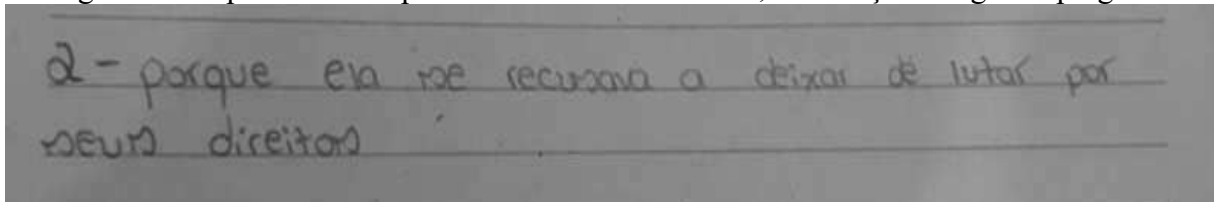 2 - porque ela se recusava a deixar de lutar por
seus direitos